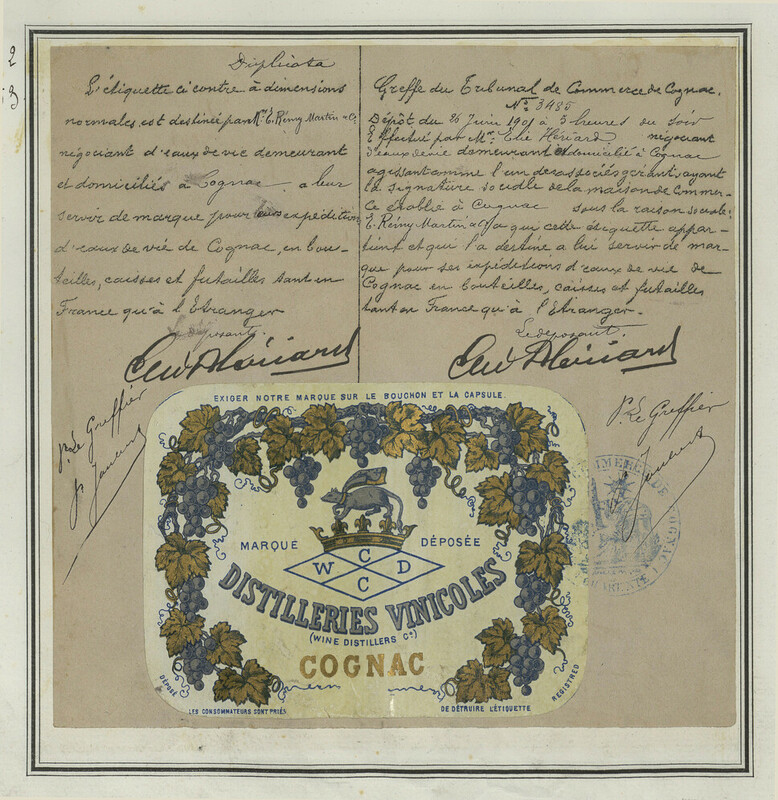 2
3
Duplicata
L'étiquette ci contre à dimensions
normales, est destinée par Mr. E. Rémy Martin & Co.
négociant d'eaux de vie demeurant
et domiciliés à Cognac, a leur
servir de marque pour leurs expéditions
d'eaux de vie de Cognac, en bou-
teilles, caisses et futailles tant en
France qu'à l'Etranger
Le déposant.
Pr. Le Greffier
Greffe du Tribunal de Commerce de Cognac.
No. 3485
Dépôt du 26 Juin 1901 à 3 heures du soir
Effectué par Mr. Elie négociant
d'eaux de vie demeurant et domicilié à Cognac
agissant comme l'un des associés gérants, ayant
la signature sociale de la maison de Commer-
ce établie à Cognac sous la raison sociale:
E. Rémy Martin & Co. a qui cette étiquette appar-
tient et qui l'a destine a lui servir de mar-
que pour ses expéditions d'eaux de vie de
Cognac en bouteilles, caisses et futailles
tant en France qu'à l'Etranger.
Le déposant.
Pr. Le Greffier
EXIGER NOTRE MARQUE SUR LE BOUCHON ET LA CAPSULE.
MARQUE DÉPOSÉE
C
W D
C
DISTILLERIES VINICOLES
(WINE DISTILLERS Co.)
COGNAC
DÉPOSÉ
REGISTRED
LES CONSOMMATEURS SONT PRIÉS
DE DÉTRUIRE L'ÉTIQUETTE
COMMERCE DE COGNAC